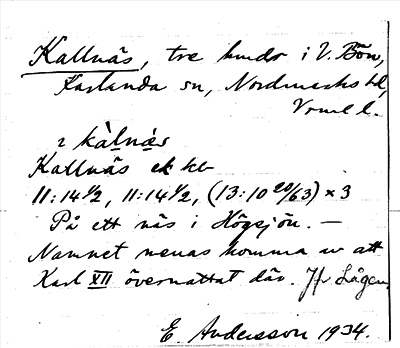 Kallnäs, tre hmdr i V. Bön,
Karlanda sn, Nordmarks hd,
Vrml l.
2 kàlnä̀s
Kallnäs ek kb
11:14 1/2, 11:14 1/2, (13:10 20/63) x 3
På ett näs i Högsjön. —
Namnet menas komma av att
Karl XII övernattat där. Jfr Lågen
E. Andersson 1934.